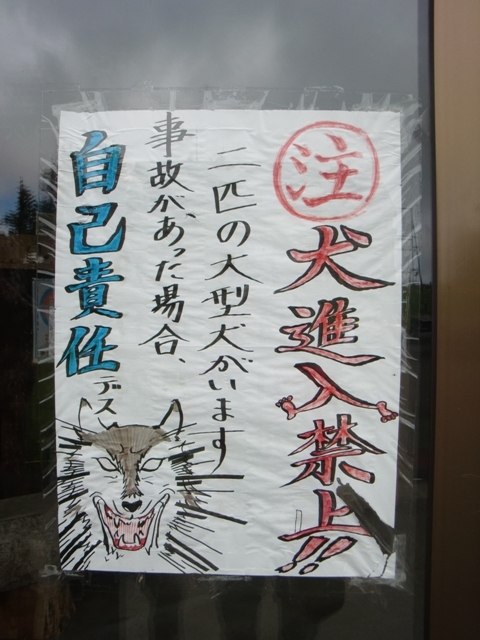 注
犬進入禁止!!
二匹の大型犬がいます
事故が、あった場合、
自己責任デス